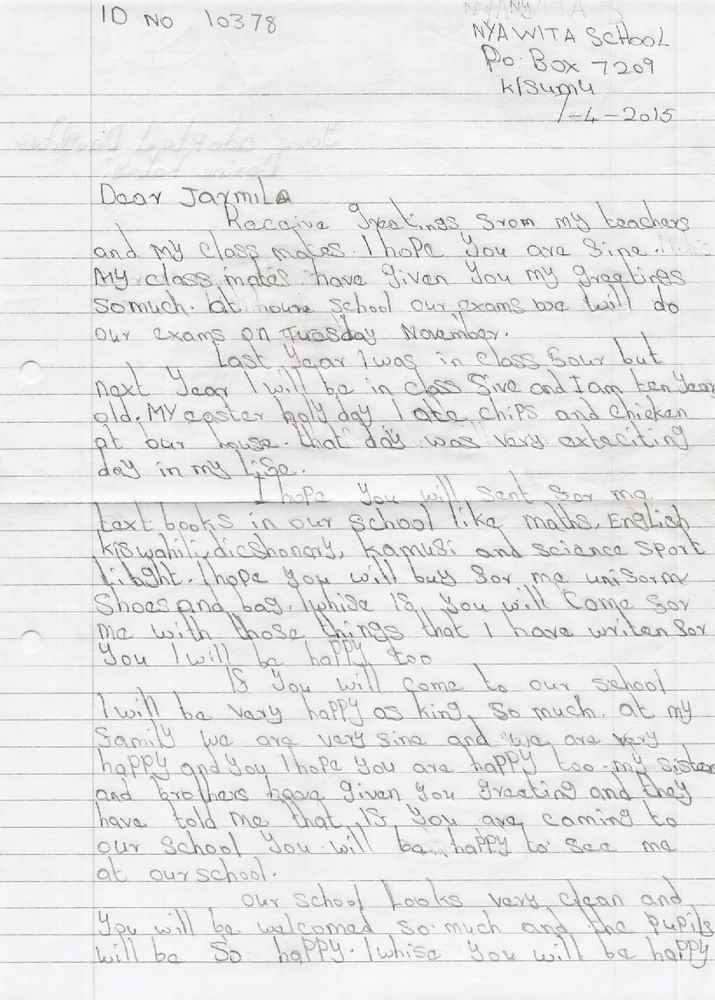 ID No 10378
NYAWITA SCHOOL
Po. Box 7209
KISUMU
1-4-2015
Dear Jarmila
Receive greetings from my teachers
and my class mates. I hope you are fine.
My class mates have given you my greetings
somuch. at houre school our exams we will do
our exams on Tuasday November.
Last year I was in class four but
next year I will be in class five and I am ten year
old. My easter holy day I ate chips and chicken
at our house. that day was very exteciting
day in my life.
I hope you will sent for me
text books in our school like maths, English
kiswahili, dicshonary, kamusi and science sport
liight. I hope you will buy for me uniform
shoes and bag. I whise if you will come for
me with those things that I have writen for
you I will be happy too
If you will come to our school
I will be very happy as king so much. at my
family we are very fine and we are very
happy and you I hope you are happy too. my sister
and brothers have given you greeting and they
have told me that if you are coming to
our school you will be happy to see me
at our school.
our school looks very clean and
you will be welcomed so much and the pupils
will be so happy. I whise you will be happy